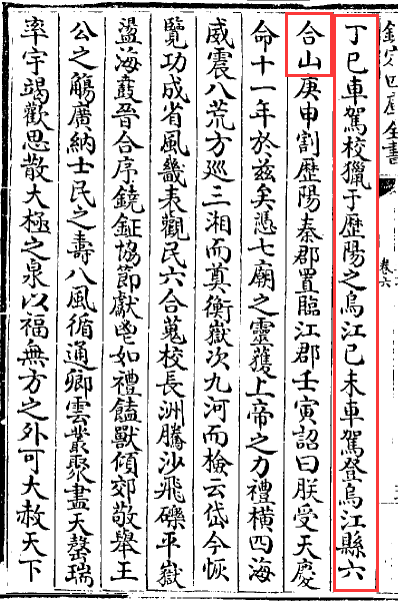 欽定四庫全書
卷六
丁巳車駕校獵于歷陽之烏江己未車駕登烏江縣六
合山庚申割歷陽秦郡置臨江郡壬寅詔曰朕受天慶
命十一年於兹矣憑七廟之靈獲上帝之力禮横四海
威震八荒方廵三湘而奠衡嶽次九河而檢云岱今恢
覽功成省風畿表觀民六合蒐校長洲騰沙飛礫平嶽
盪海鼖晉合序鐃鉦協節獻鬯如禮饁獸傾郊敬舉王
公之觴廣納士民之壽八風循通卿雲叢聚盡天罄瑞
率宇竭歡思散大極之泉以福無方之外可大赦天下